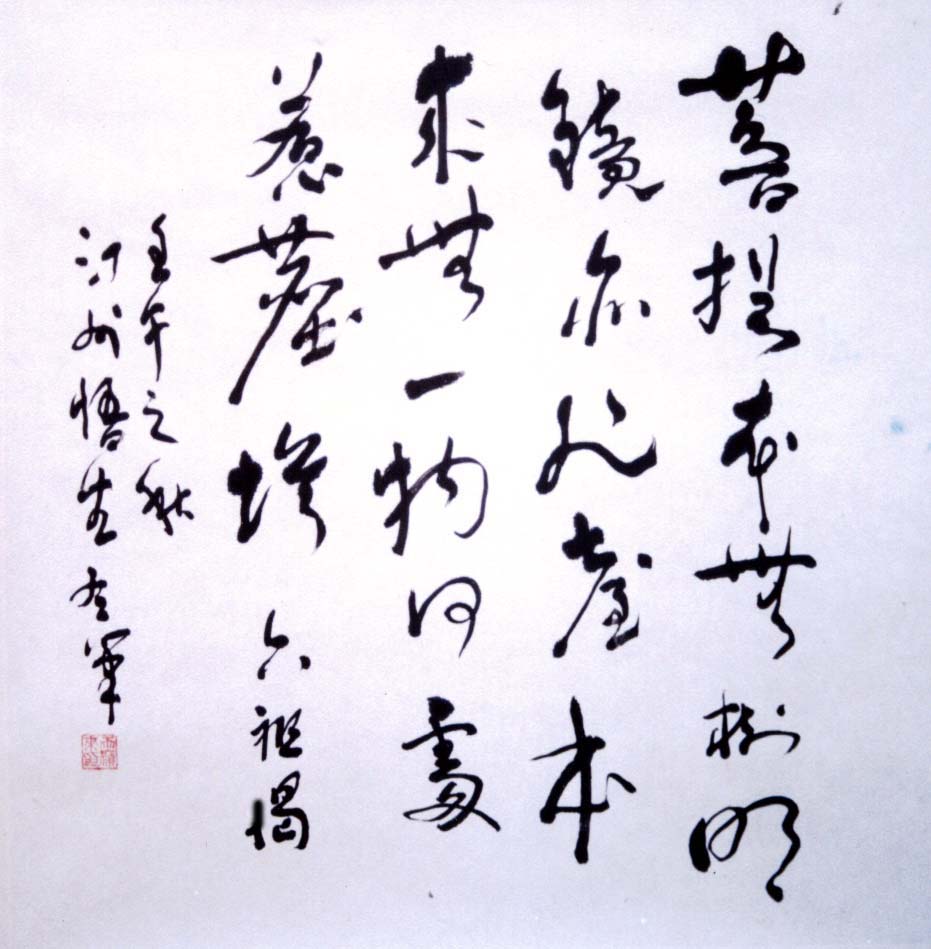 菩提本無樹明
鏡亦非臺本
來無一物何處
惹塵埃 六祖偈
壬午之秋
汀州悟生 筆